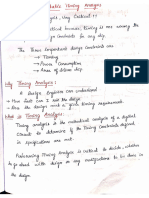 Static Timing Analysis
Very Critical
timing is one among the
design constraints for any chip.
The three important design constraints are
→ Timing
→ Power Consumption
→ Area of silicon chip
Why Timing Analysis:
A design Engineer can understand
→ How fast can I run the design
→ If the design meets a given timing requirement.
What is Timing Analysis:
Timing analysis is the methodical analysis of a digital
circuit to determine if the timing constraints imposed
are met.
Performing timing analysis is critical to decide, whether
to go ahead with the design or any modifications to be done to
the design.